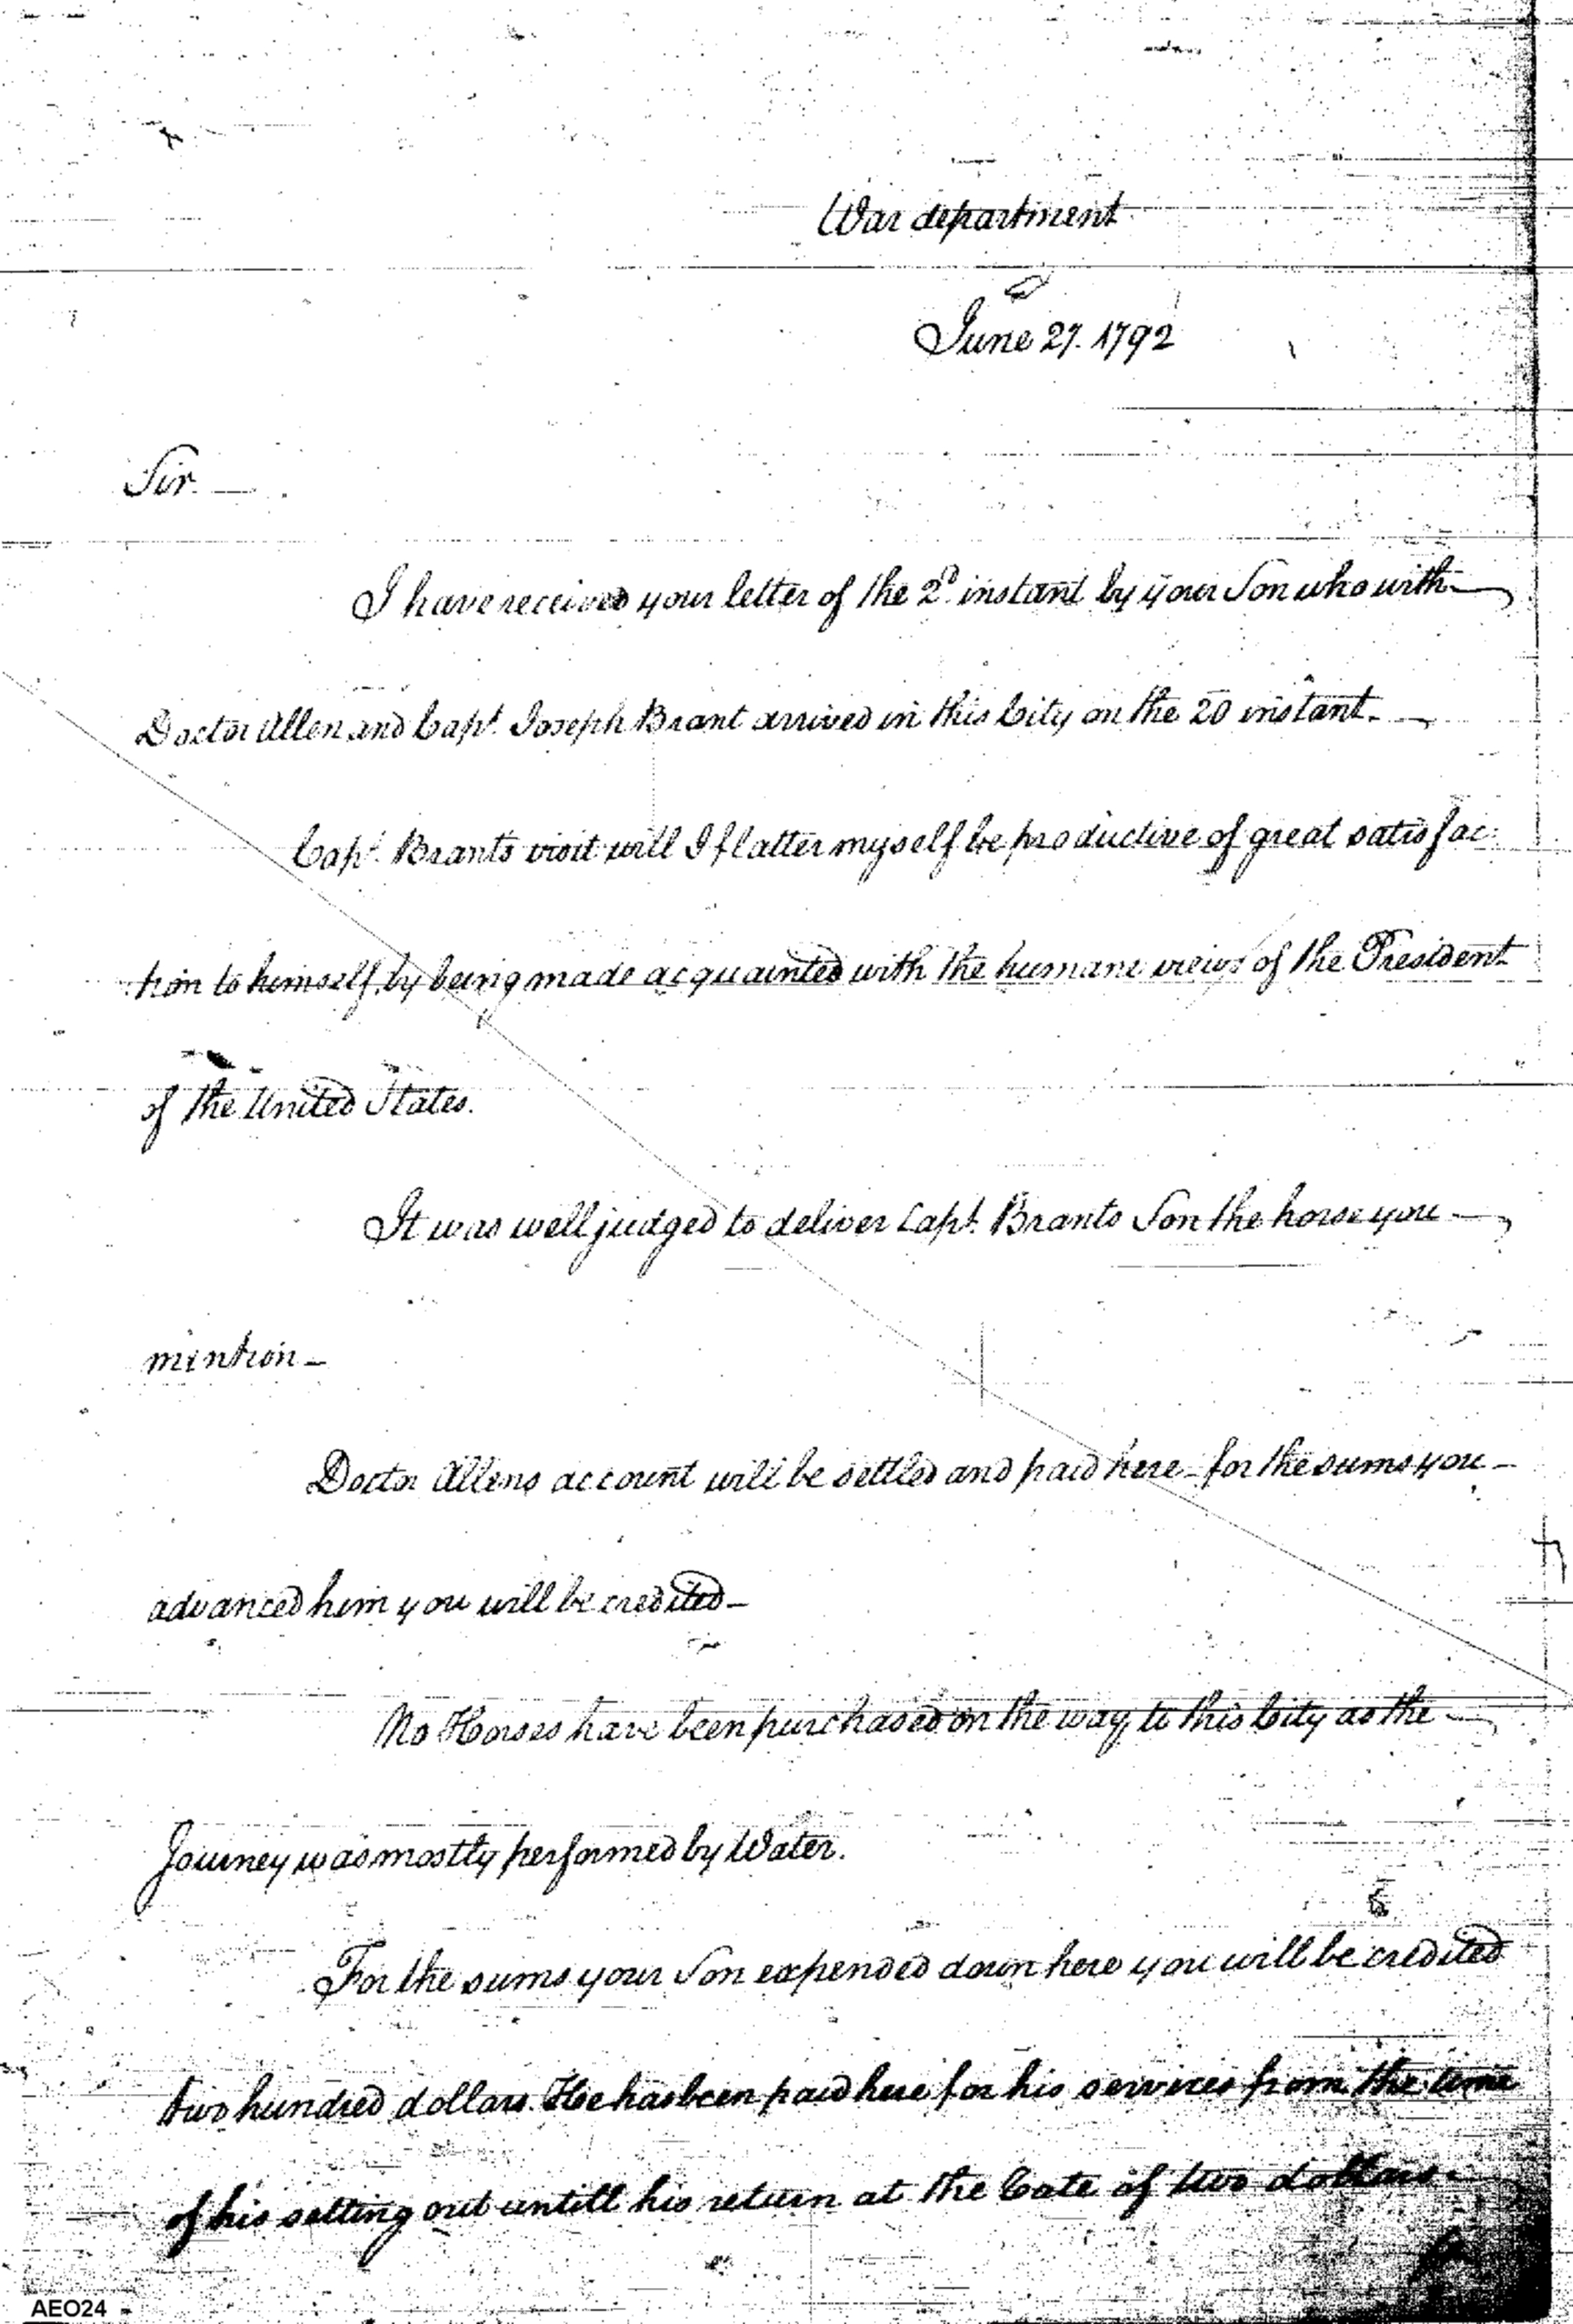 War department
June 27. 1792
Sir. —
I have received your letter of the 2d. instant by your Son who with —
Doctor Allen and Capt. Joseph Brant arrived in this City on the 20 instant. —
Capt. Brants visit will I flatter myself be productive of great satisfac-
tion to himself, by being made acquainted with the humane views of the President
of the United States.
It was well judged to deliver Capt. Brants Son the horse you —
mention —
Doctor Allens account will be settled and paid here - for the sums you —
advanced him you will be credited —
No Horses have been purchased on the way, to this City as the —
Journey was mostly performed by Water.
For the sums your Son expended down here you will be credited
two hundred dollars. He has been paid here for his services from the time
of his setting out untill his return at the Cate of two dollars.
AEO24